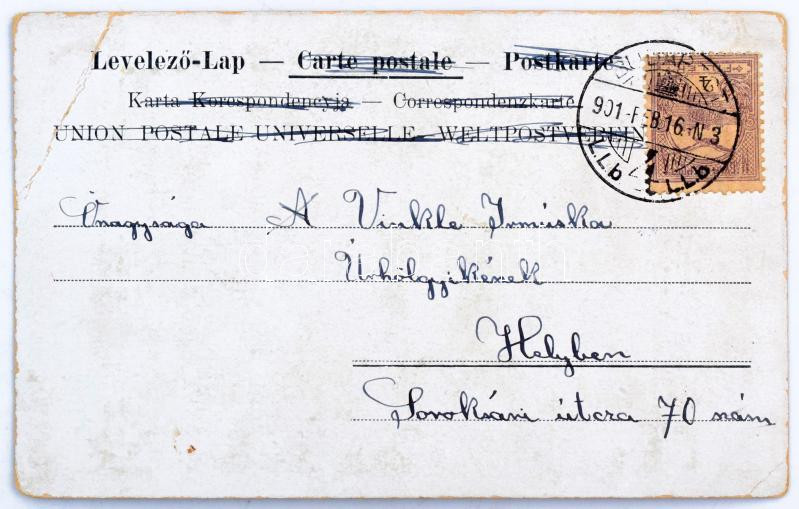 Levelező-Lap — Carte postale — Postkarte
Karta Korespondencyja — Correspondenzkarte
UNION POSTALE UNIVERSELLE. WELTPOSTVEREIN
901-FEB.16.-N 3
Őnagysága A Vinkle Irmuska
Úrhölgyikének
Helyben
Soroksári útcza 70 szám